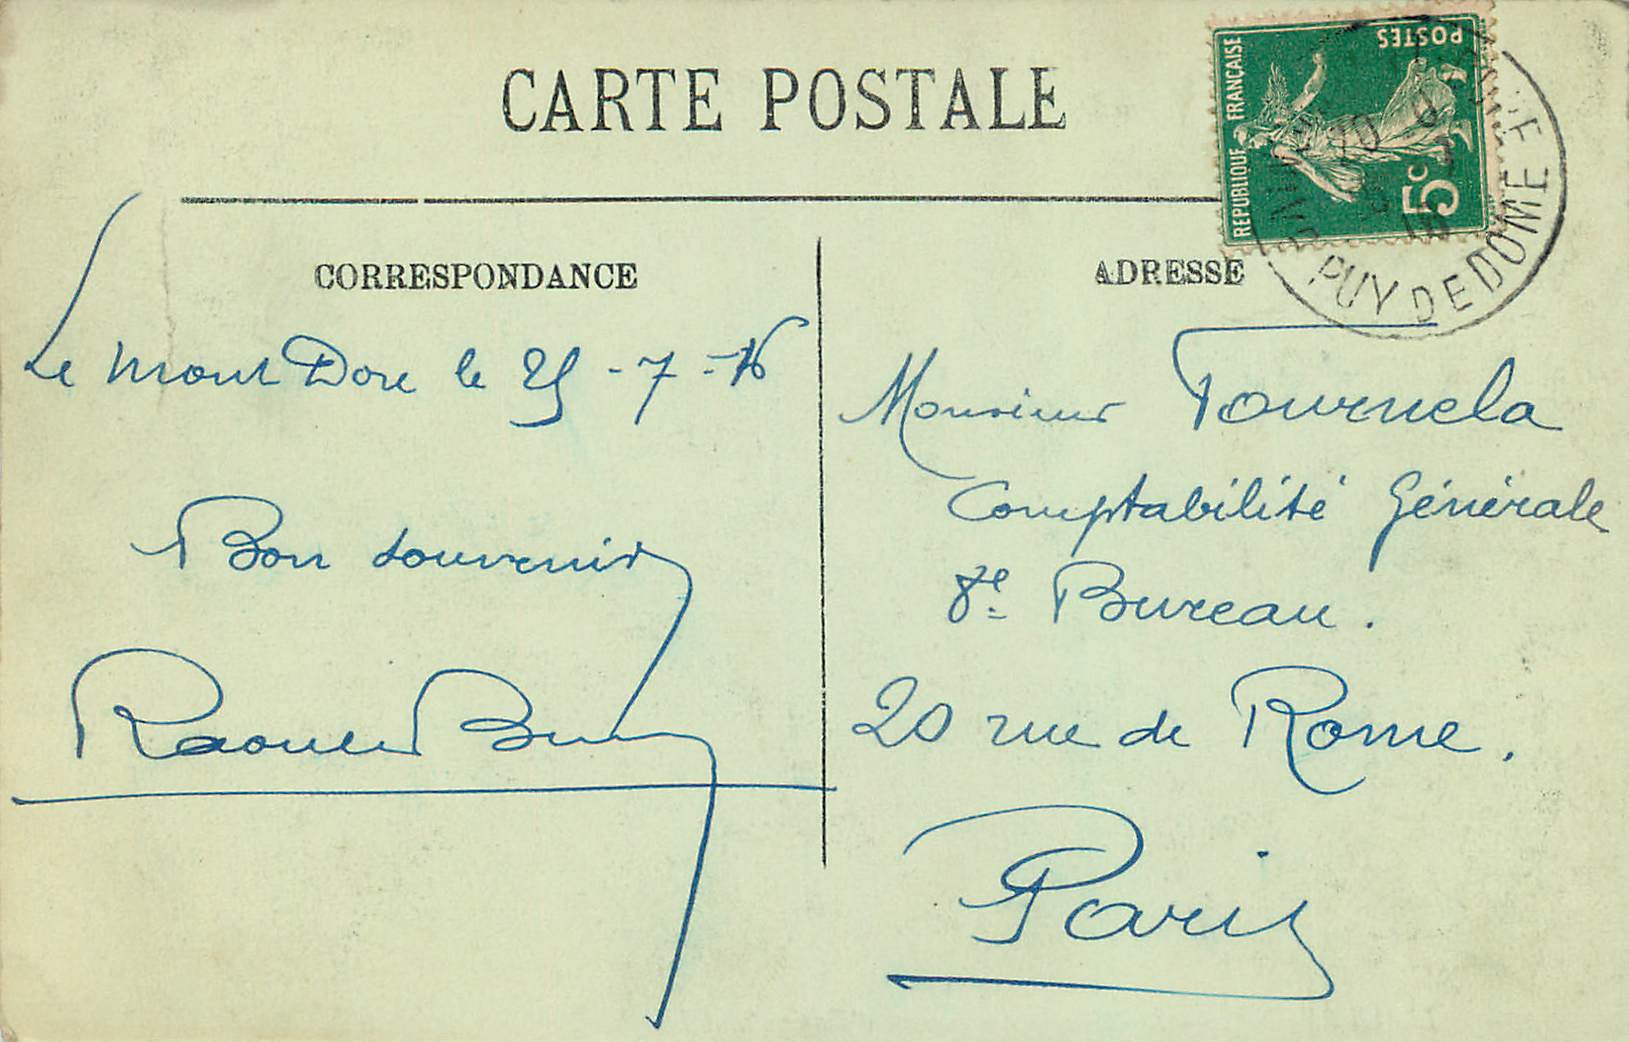 CARTE POSTALE
CORRESPONDANCE
Le Mont Dore le 25-7-16
Bon souvenir
ADRESSE
Monsieur Tournela
Comptabilité Générale
8e Bureau.
20 rue de Rome.
Paris
REPUBLIQUE FRANÇAISE
POSTES
5c
PUY DE DOME